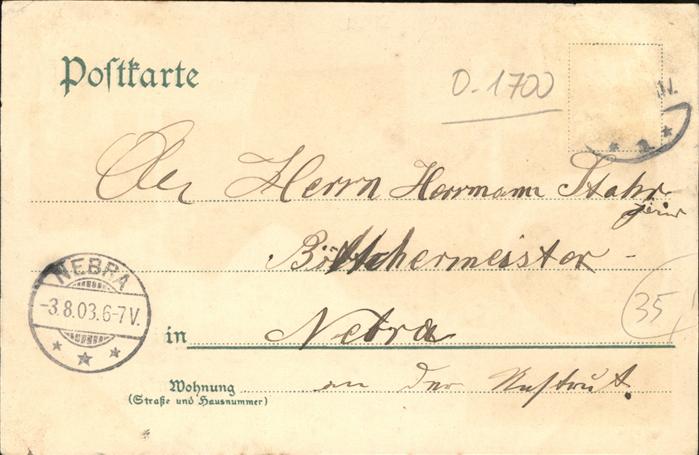 Postkarte
D-1700
An Herrn Herrmann Stahr
jun
Böttchermeister -
NEBRA
-3.8.03.6-7V.
35
in Nebra
Wohnung an der Unstrut.
(Straße und Hausnummer)